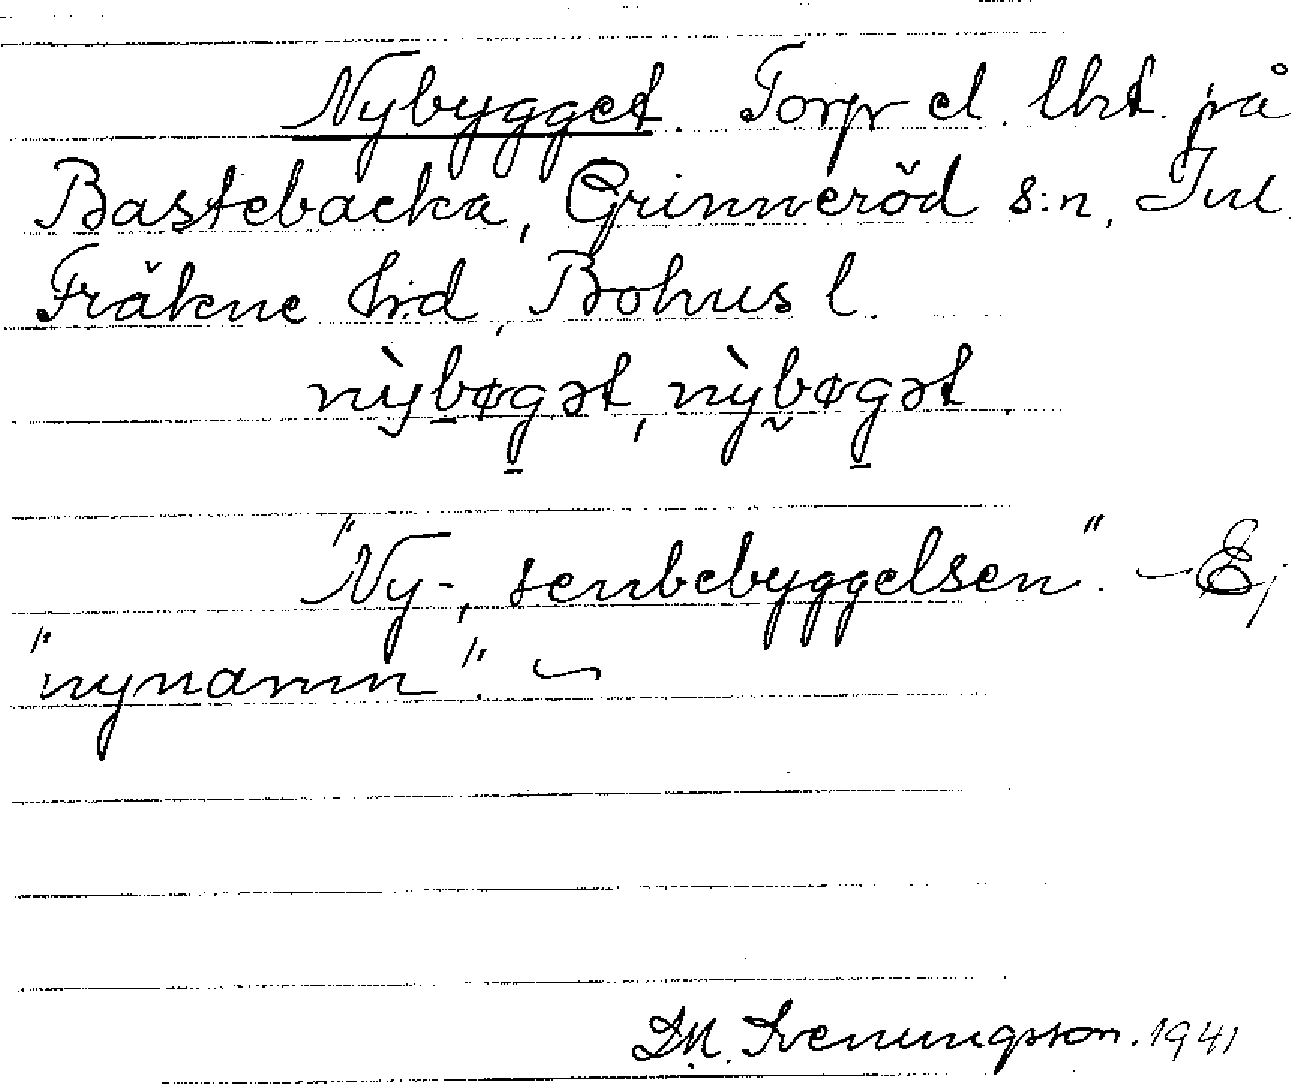 Nybygget. Torp el. lht. på
Bastebacka, Grinneröd s:n, Inl.
Fräkne hd, Bohus l.
nỳbøgət, nỳbøgət
"Ny-, senbebyggelsen". – Ej
"nynamn". –
D.N. Svenungsson. 1941